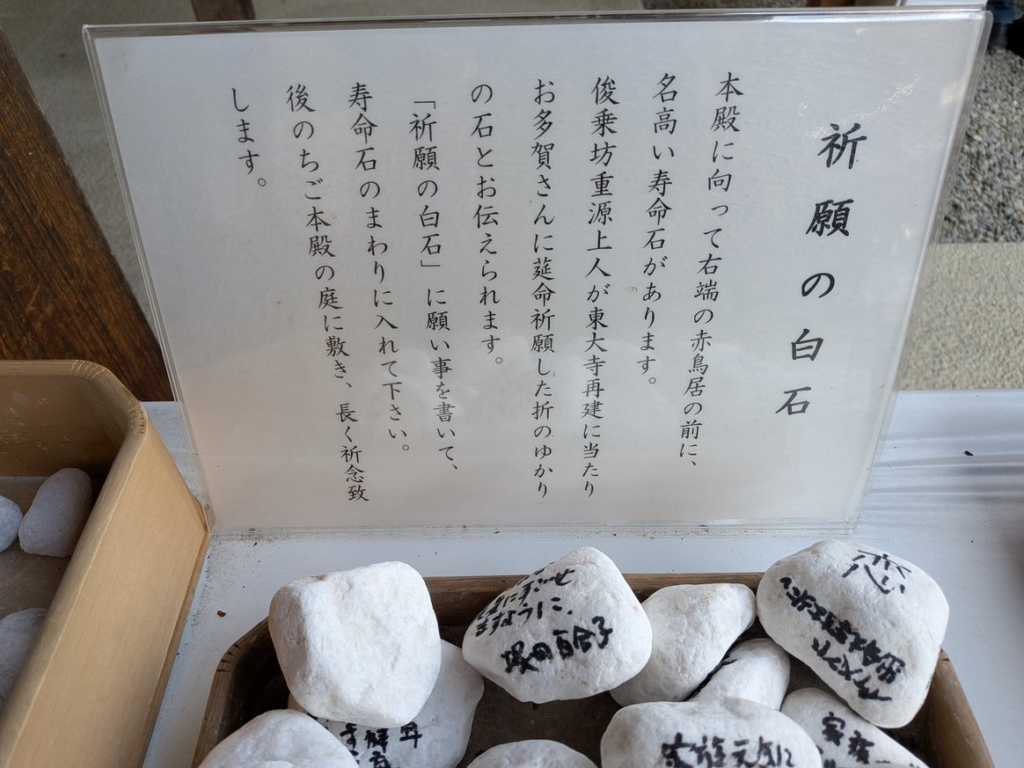 祈願の白石
本殿に向って右端の赤鳥居の前に、
名高い寿命石があります。
俊乗坊重源上人が東大寺再建に当たり
お多賀さんに莚命祈願した折のゆかり
の石とお伝えられます。
「祈願の白石」に願い事を書いて、
寿命石のまわりに入れて下さい。
後のちご本殿の庭に敷き、長く祈念致
します。
ますように、
塚田百合子
家族元気に